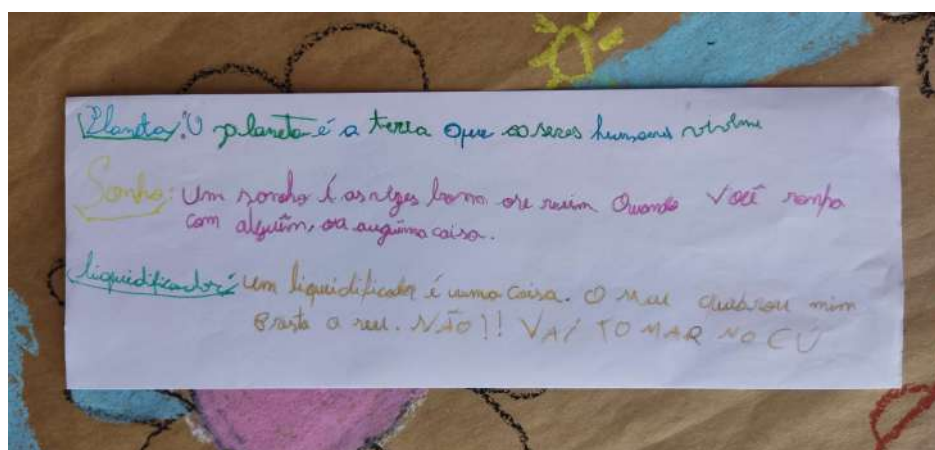 Planeta: O planeta é a terra que os seres humanos vivlme
Sonho: Um sonho é as vezes bom ore ruim Quando Você sonha
com alguêm, ou auguma caisa.
liquidificador: um liquidificador é uma Coisa. O meu quebrou mim
Prasta o seu. NÃO!! VAI TOMAR NO CÚ